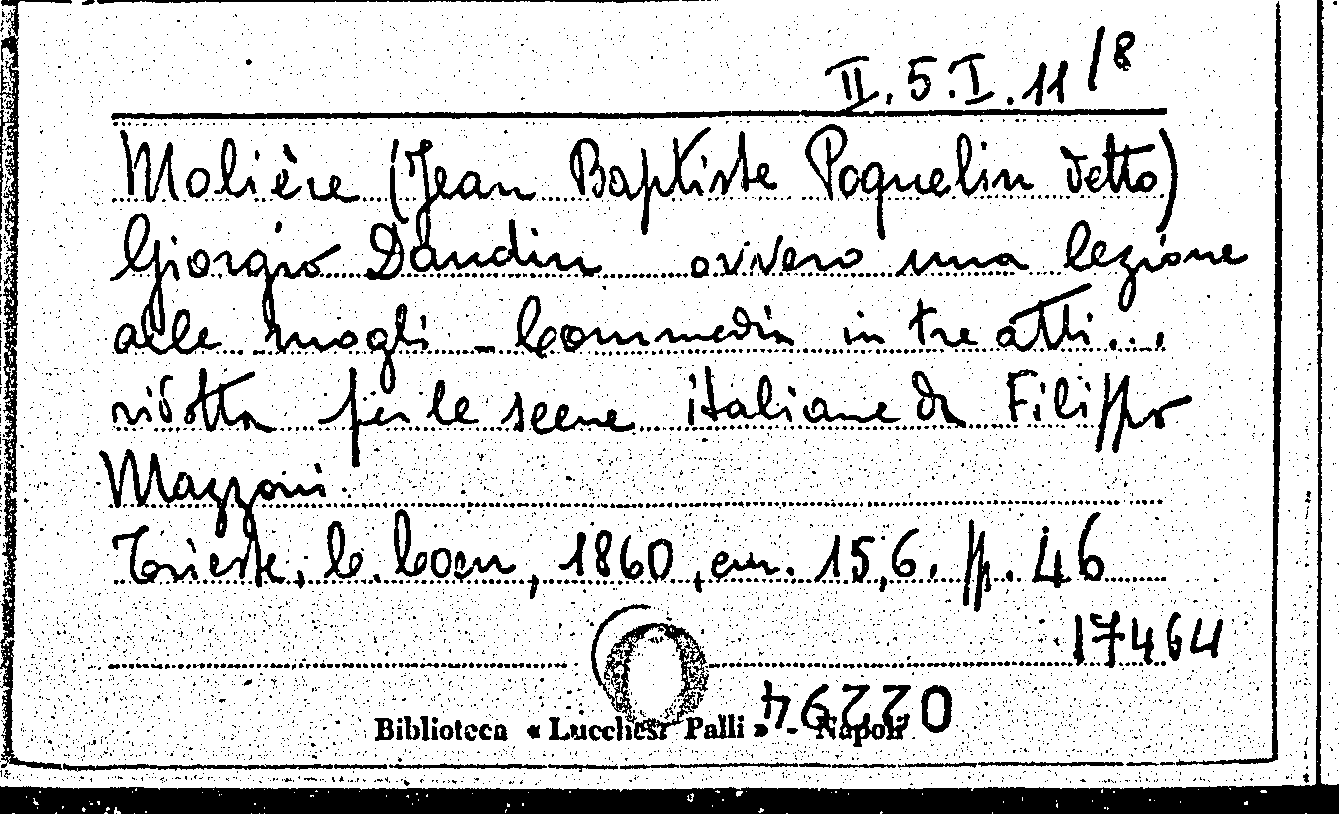 II.5.I.11/8
Molière (Jean Baptiste Poquelin detto)
Giorgio Dandin ovvero una lezione
alle mogli - Commedia in tre atti...
ridotta per le scene italiane da Filippo
Mazzoni.
Trieste, C. Coen, 1860, cm. 15,6. pp. 46
17464
Biblioteca « Lucchesi Palli » - Napoli
02294